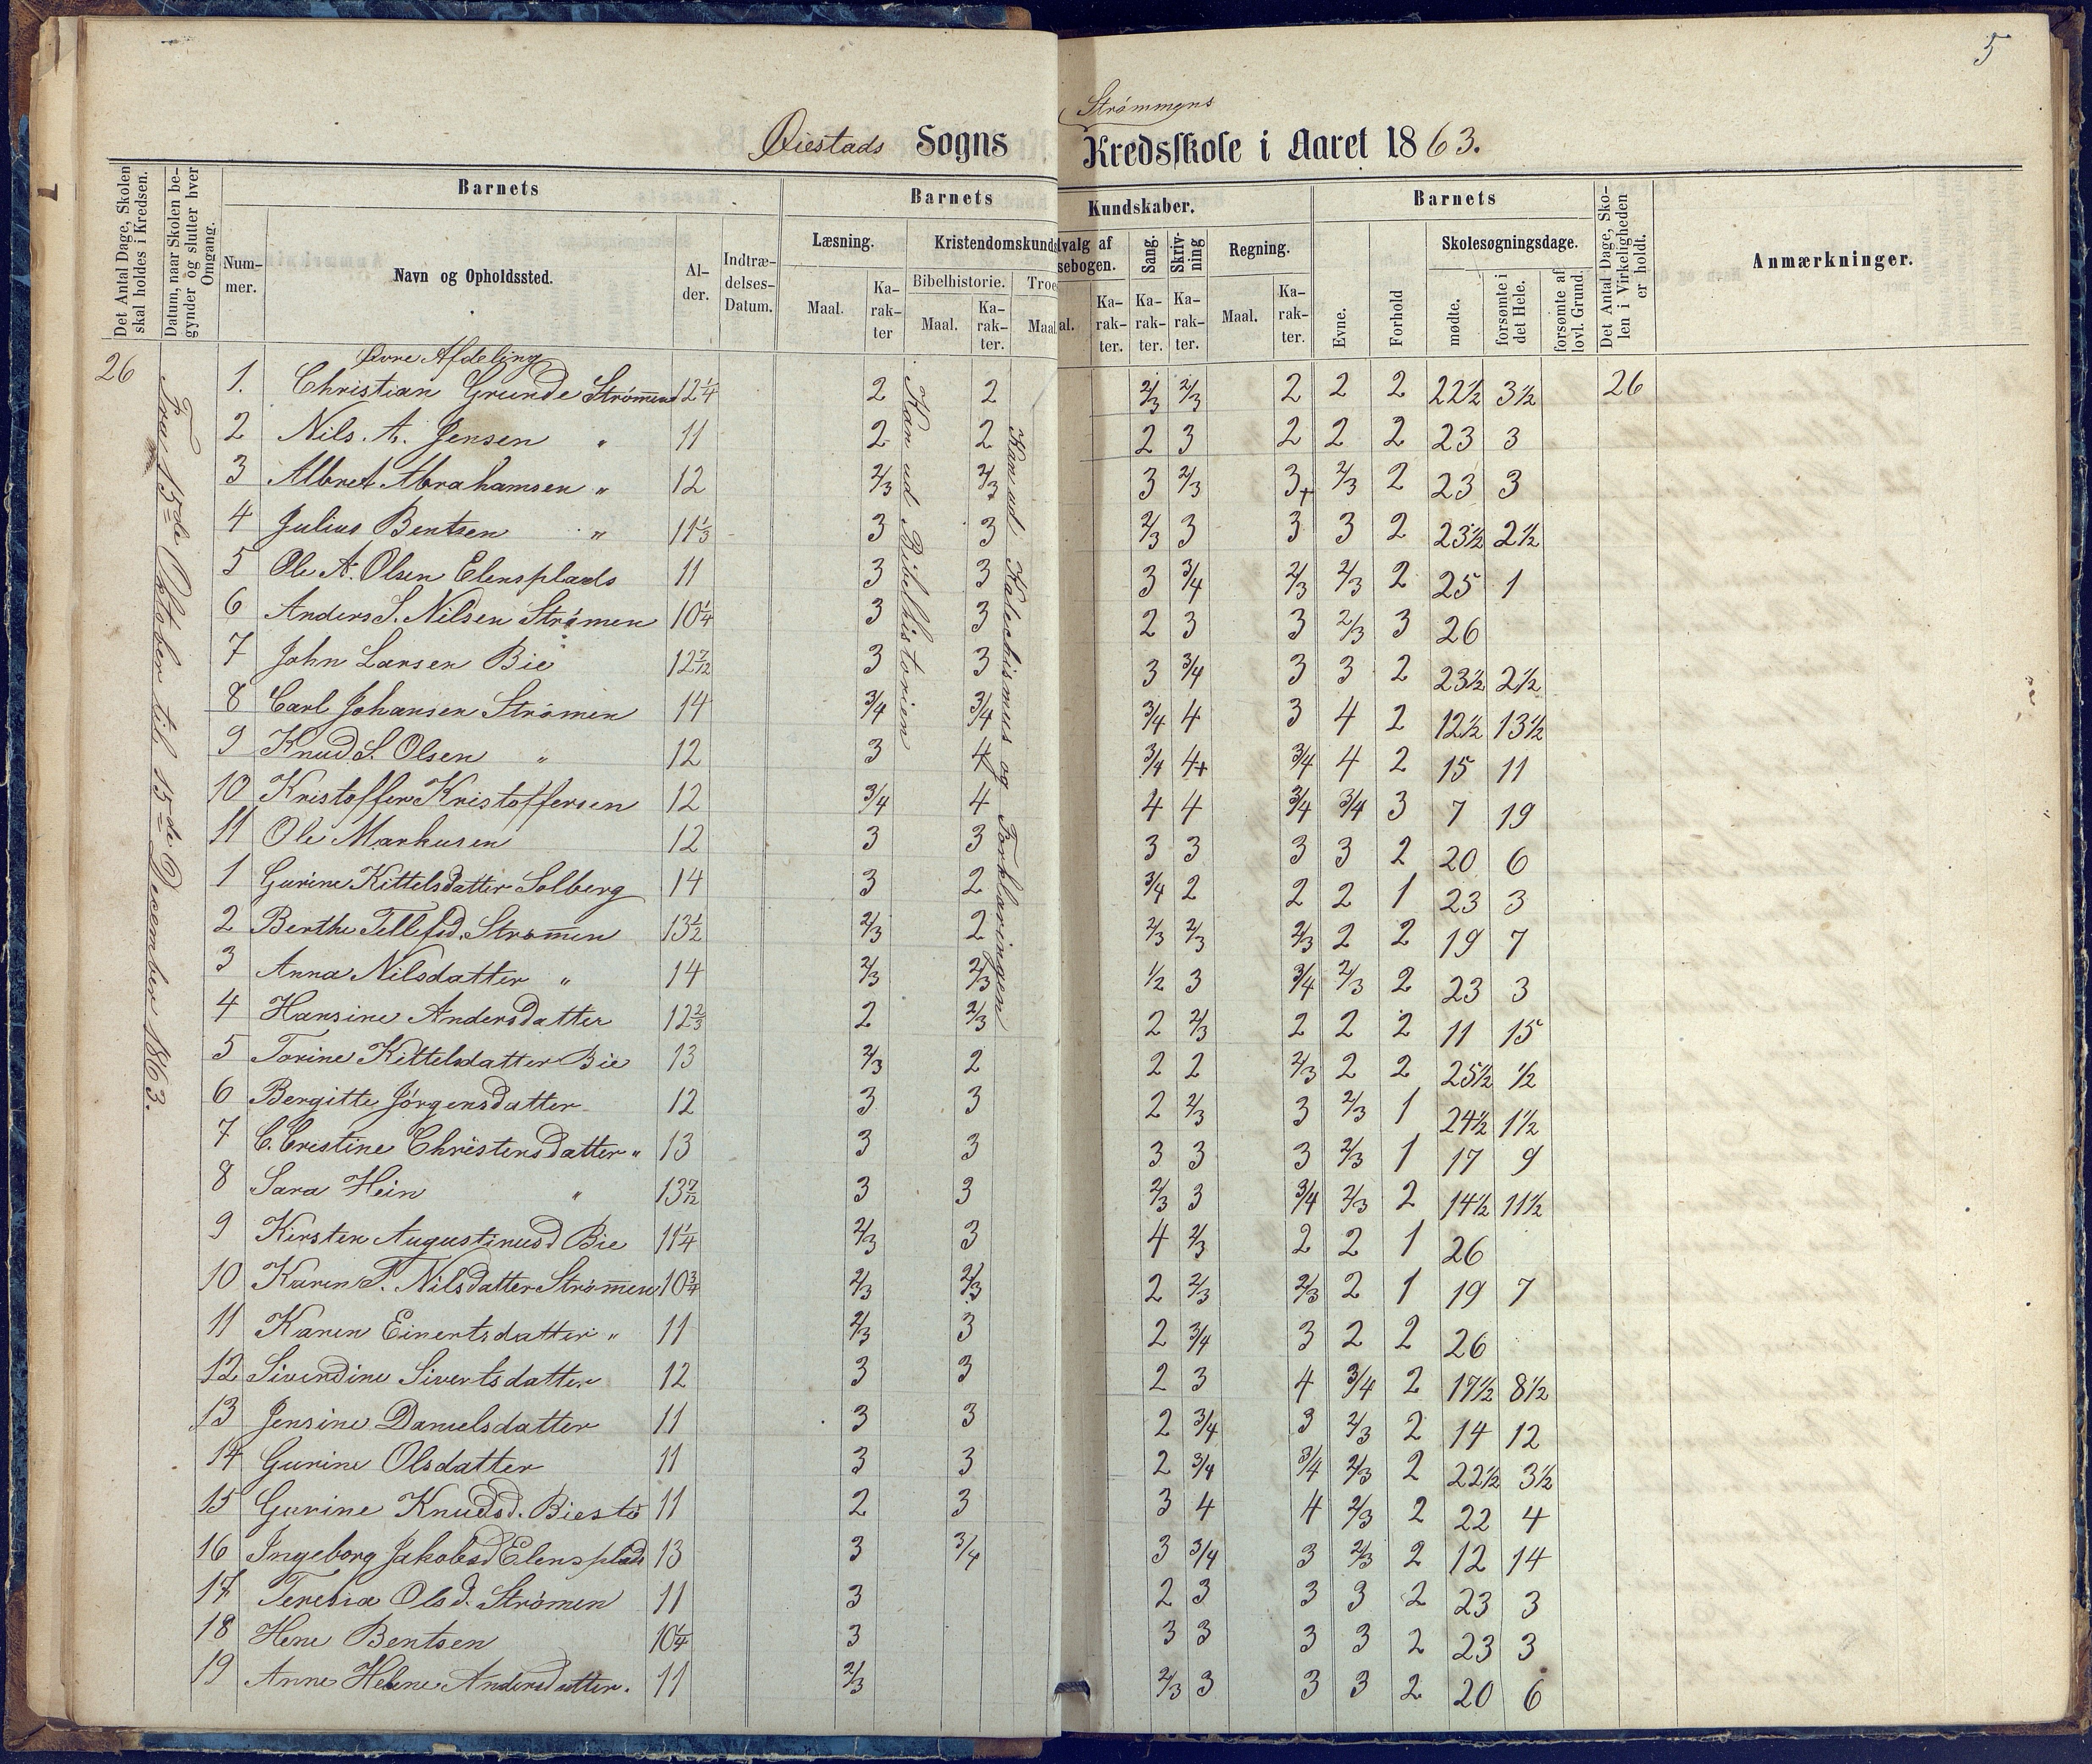 5
Strömmens
Øiestads Sogns Kredsskole i Aaret 1863.
Det Antal Dage, Skolen skal holdes i Kredsen.
Datum, naar Skolen begynder og slutter hver Omgang.
Barnets
Barnets
Kundskaber.
Barnets
Det Antal Dage, Skolen i Virkeligheden er holdt.
Anmærkninger.
Nummer.
Navn og Opholdssted.
Alder.
Indtrædelses-Datum.
Læsning.
Kristendomskunds
Bibelhistorie.
Troe
lvalg af
sebogen.
Sang.
Skrivning
Regning.
Evne.
Forhold
Skolesøgningsdage.
mødte.
forsømte i det Hele.
forsømte af lovl. Grund.
Maal. Karakter Maal. Karakter. Maal al. Karakter. Karakter. Karakter. Maal. Karakter.
Øvre Afdeling
26
Fra 15de Oktober til 15de December 1863.
Kan ud Bibelhistorien
Kan ud Katechismus og Forklaringen
1. Christian Grunde Strömmen 12 1/4 2 2 2/3 2/3 2 2 2 22 1/2 3 1/2 26
2 Nils. A. Jensen " 11 2 2 2 3 2 2 2 23 3
3 Albret Abrahamsen " 12 2/3 2/3 3 2/3 3+ 2/3 2 23 3
4 Julius Bentsen " 11 1/3 3 3 2/3 3 3 3 2 23 1/2 2 1/2
5 Ole A. Olsen Elensplads 11 3 3 3 3/4 2/3 2/3 2 25 1
6 Anders S. Nilsen Strömen 10 1/4 3 3 2 3 3 2/3 3 26
7 John Larsen Bie 12 7/12 3 3 3 3/4 3 3 2 23 1/2 2 1/2
8 Carl Johansen Strömen 14 3/4 3/4 3/4 4 3 4 2 12 1/2 13 1/2
9 Knud S. Olsen " 12 3 4 3/4 4+ 3/4 4 2 15 11
10 Kristoffer Kristoffersen 12 3/4 4 4 4 3/4 3/4 3 7 19
11 Ole Markusen 12 3 3 3 3 3 3 2 20 6
1 Gurine Kittelsdatter Solberg 14 3 2 3/4 2 2 2 1 23 3
2 Berthe Tellefsd. Strömmen 13 1/2 2/3 2 2/3 2/3 2/3 2 2 19 7
3 Anna Nilsdatter " 14 2/3 2/3 1/2 3 3/4 2/3 2 23 3
4 Hansine Andersdatter 12 2/3 2 2/3 2 2/3 2 2 2 11 15
5 Torine Kittelsdatter Bie 13 2/3 2 2 2 2/3 2 2 25 1/2 1/2
6 Bergitte Jörgensdatter 12 3 3 2 2/3 3 2/3 1 24 1/2 1 1/2
7 C. Cristine Christensdatter " 13 3 3 3 3 3 2/3 1 17 9
8 Sara Hein " 13 7/12 3 3 2/3 3 3/4 2/3 2 14 1/2 11 1/2
9 Kirsten Augustinusd Bie 11 1/4 2/3 3 4 2/3 2 2 1 26
10 Karen T. Nilsdatter Strömmen 10 3/4 2/3 2/3 2 2/3 2/3 2 1 19 7
11 Karen Einertsdatter " 11 2/3 3 2 3/4 3 2 2 26
12 Sivendine Sivertsdatter 12 3 3 2 3 4 3/4 2 17 1/2 8 1/2
13 Jensine Danielsdatter 11 3 3 2 3/4 3 2/3 2 14 12
14 Gurine Olsdatter 11 3 3 2 3/4 3/4 2/3 2 22 1/2 3 1/2
15 Gurine Knudsd. Biestö 11 2 3 3 4 4 2/3 2 22 4
16 Ingeborg Jakobsd Elensplads 13 3 3/4 3 3/4 3 2/3 2 12 14
17 Teresia Olsd. Strömen 11 3 2 3 3 3 2 23 3
18 Hene Bentsen 10 1/4 3 3 3 3 3 2 23 3
19 Anne Helene Andersdatter. 11 2/3 2/3 3 3 3 2 20 6